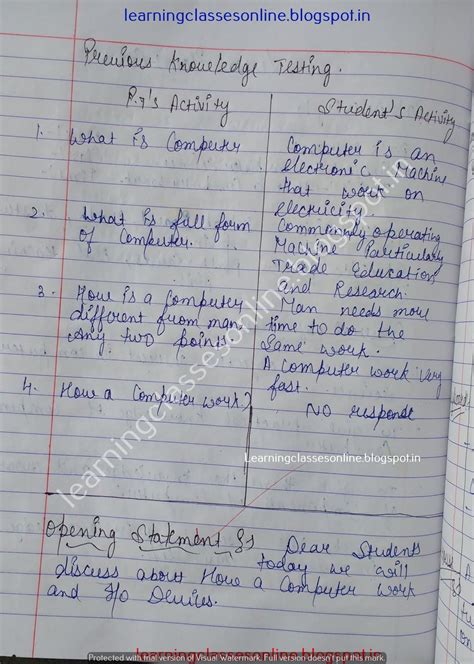 learningclassesonline.blogspot.in
Previous Knowledge Testing.
P.T's Activity
Student's Activity
1. What is Computer
Computer is an
electronic Machine
that work on
electricity
2. What is full form
of Computer.
Commonly operating
Machine Particularly
Trade Education
and Research.
3. How is a computer
different from man,
any two points.
Man needs more
time to do the
same work.
A computer work very
fast.
4. How a Computer work?
No response
Learningclassesonline.blogspot.in
learningclassesonline.blogspot.in
Opening Statement :- Dear Students
today we will
discuss about How a Computer work
and I/O Devices.
Protected with trial version of Visual Watermark. Full version doesn't put this mark.
learningclassesonline.blogspot.in